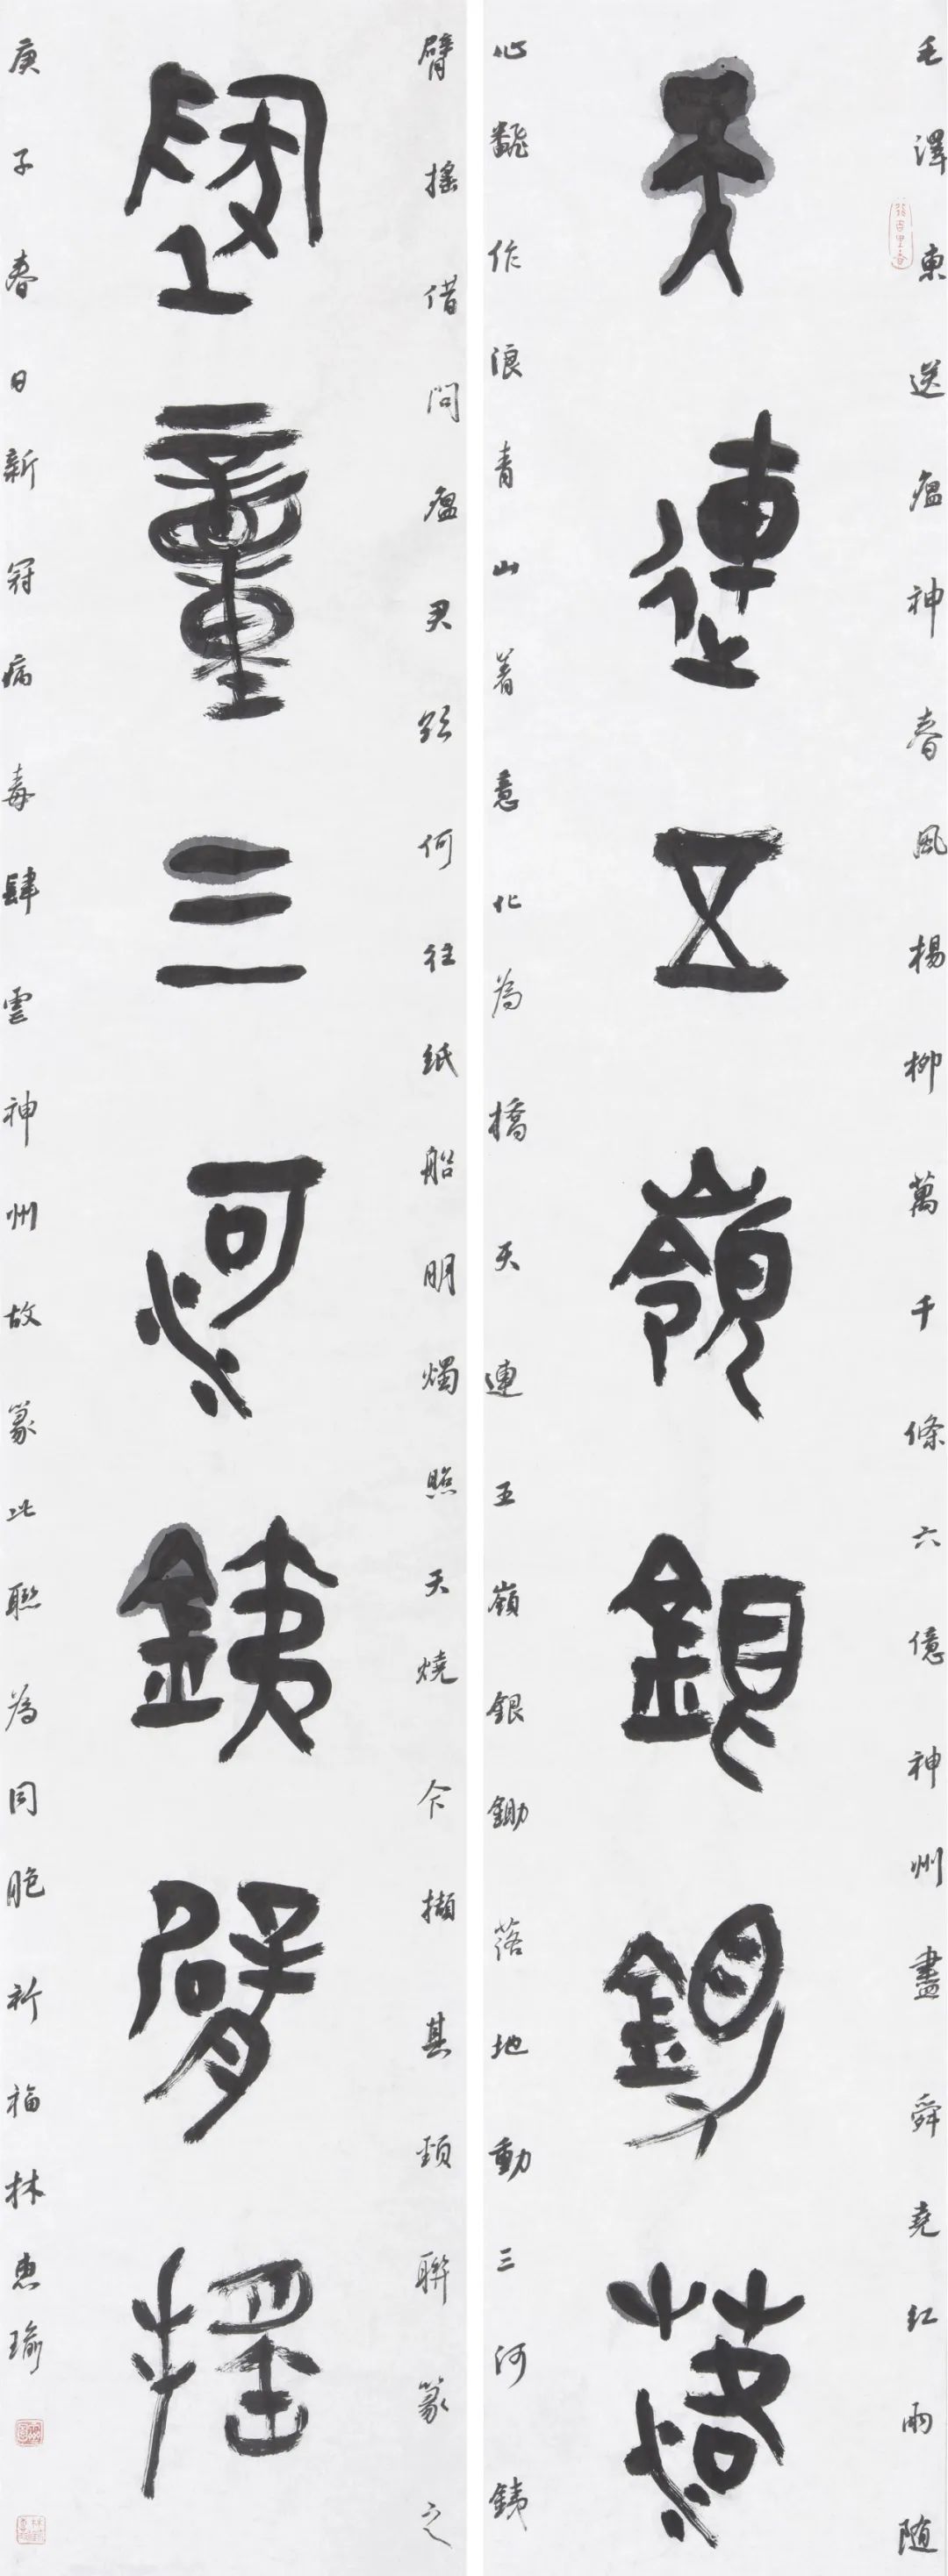 毛澤東送瘟神春風楊柳萬千條六億神州盡舜堯紅雨随
天連五嶺銀鋤落
心飜作浪青山着意化為橋天連五嶺銀鋤落地動三河銕
臂搖借問瘟君欲何往紙船明燭照天燒今擷其頸聯篆之
墬童三河銕臂搖
庚子春日新冠病毒肆雲神州故篆此聯為同胞祈福林惠瑜